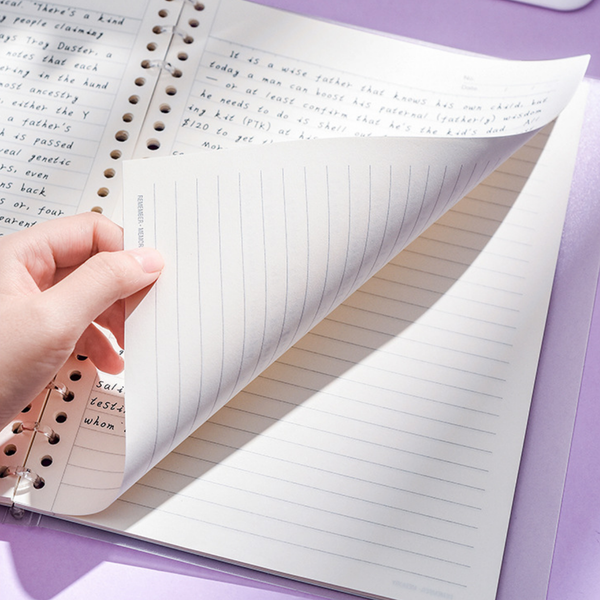 ical. "There's a kind
people claiming
ays Troy Duster, a
notes that each
ering in the hund
most ancestry
either the Y
a father's
is passed
real genetic
rs, even
ns back
s or, four
parent
It is a wise father that knows his own child, but
today a man can boost his paternal (fatherly) wisdom
— or at least confirm that he's the kid's dad. All
he needs to do is shell out
ing kit (PTK) at
$120 to get
Mor
REMEMBER
sali
testi
whom